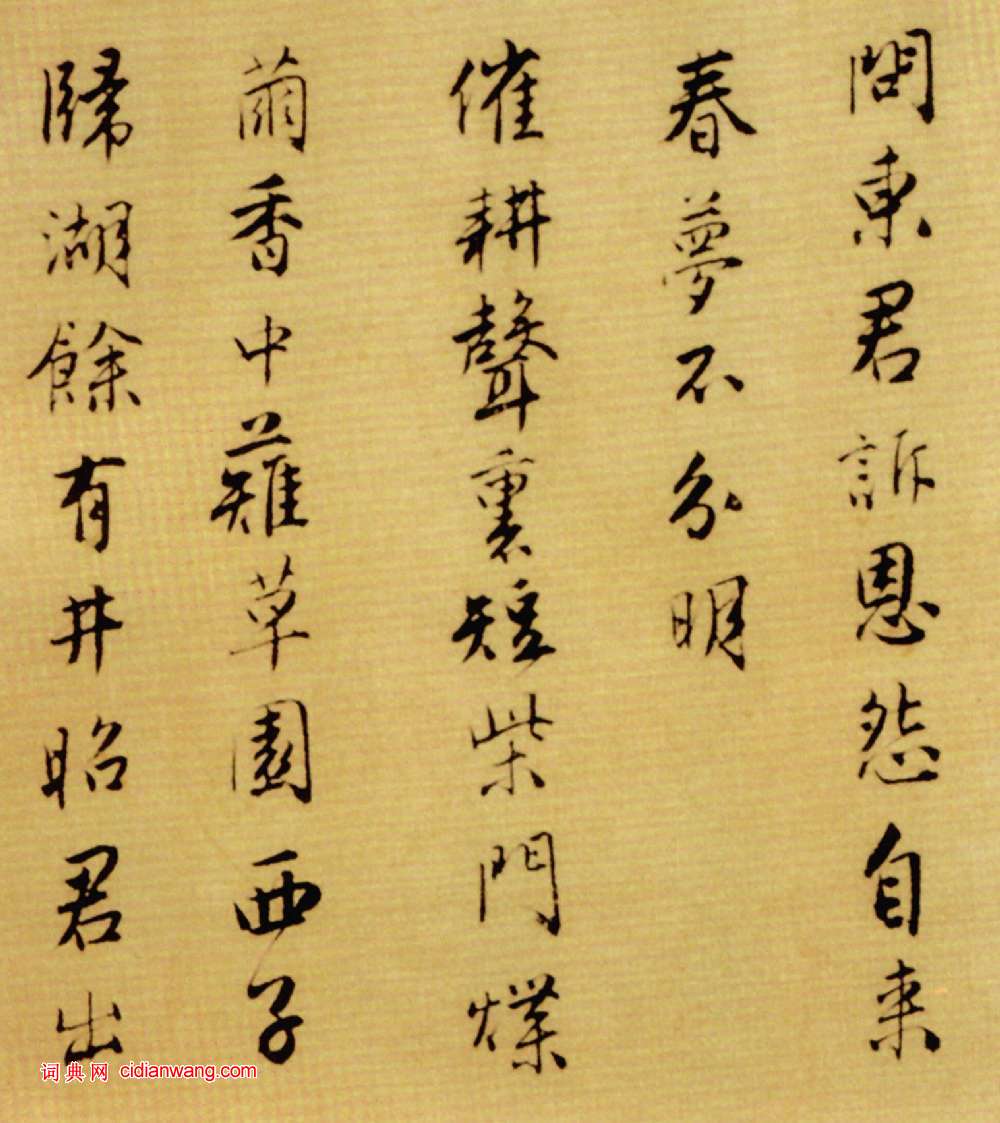 問東君訴恩怨自来
春夢不分明
催耕聲裏短柴門煠
繭香中薙草園西子
歸湖餘有井昭君出
词典网 cidianwang.com